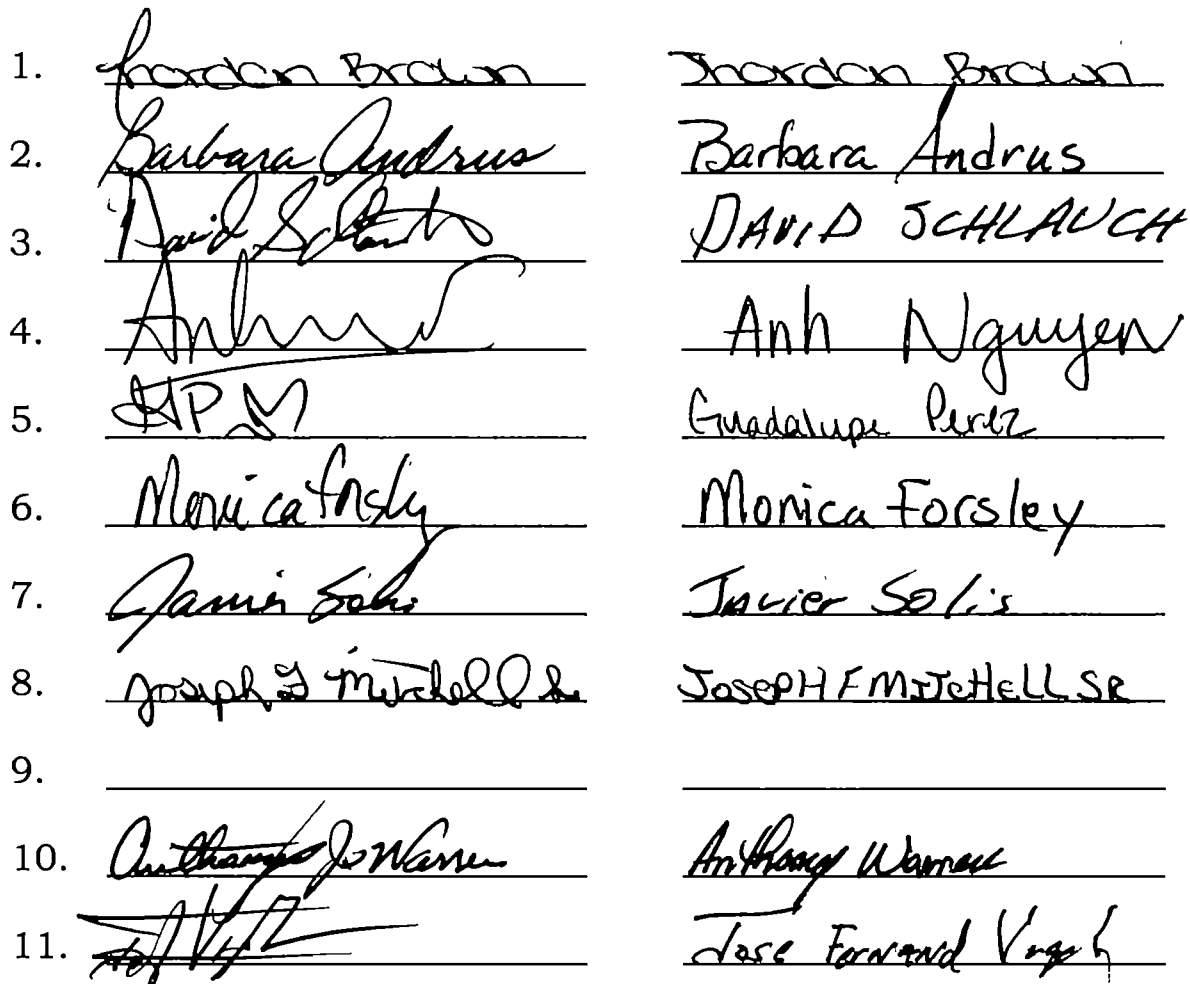 1. Jhordan Brown Jhordan Brown
2. Barbara Andrus Barbara Andrus
3. David DAVID SCHLAUCH
4. Anh Nguyen
5. GP Guadalupe Perez
6. Monica Forsley Monica Forsley
7. Javier Solis Javier Solis
8. Joseph F Mitchell Sr JOSEPH F MITCHELL SR
9.
10. Anthony J. Warren Anthony Warren
11. Jose